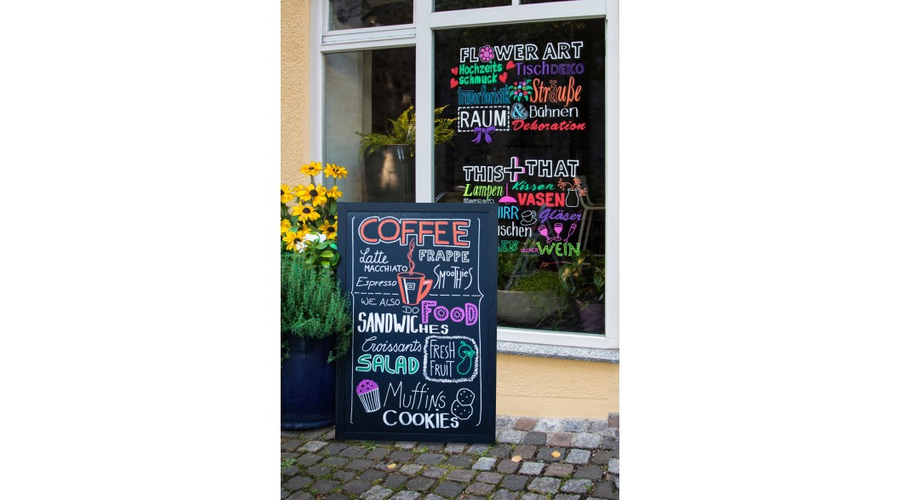 FLOWER ART
Hochzeits
schmuck
TischDEKO
Trauerfloristik
Sträuße
RAUM & Bühnen
Dekoration
THIS + THAT
Lampen
Kissen
VASEN
Gläser
WEIN
COFFEE
Latte
MACCHIATO
FRAPPE
Espresso
SMOOTHIES
WE ALSO
DO
FOOD
SANDWICHES
Croissants
SALAD
FRESH
FRUIT
Muffins
COOKIES